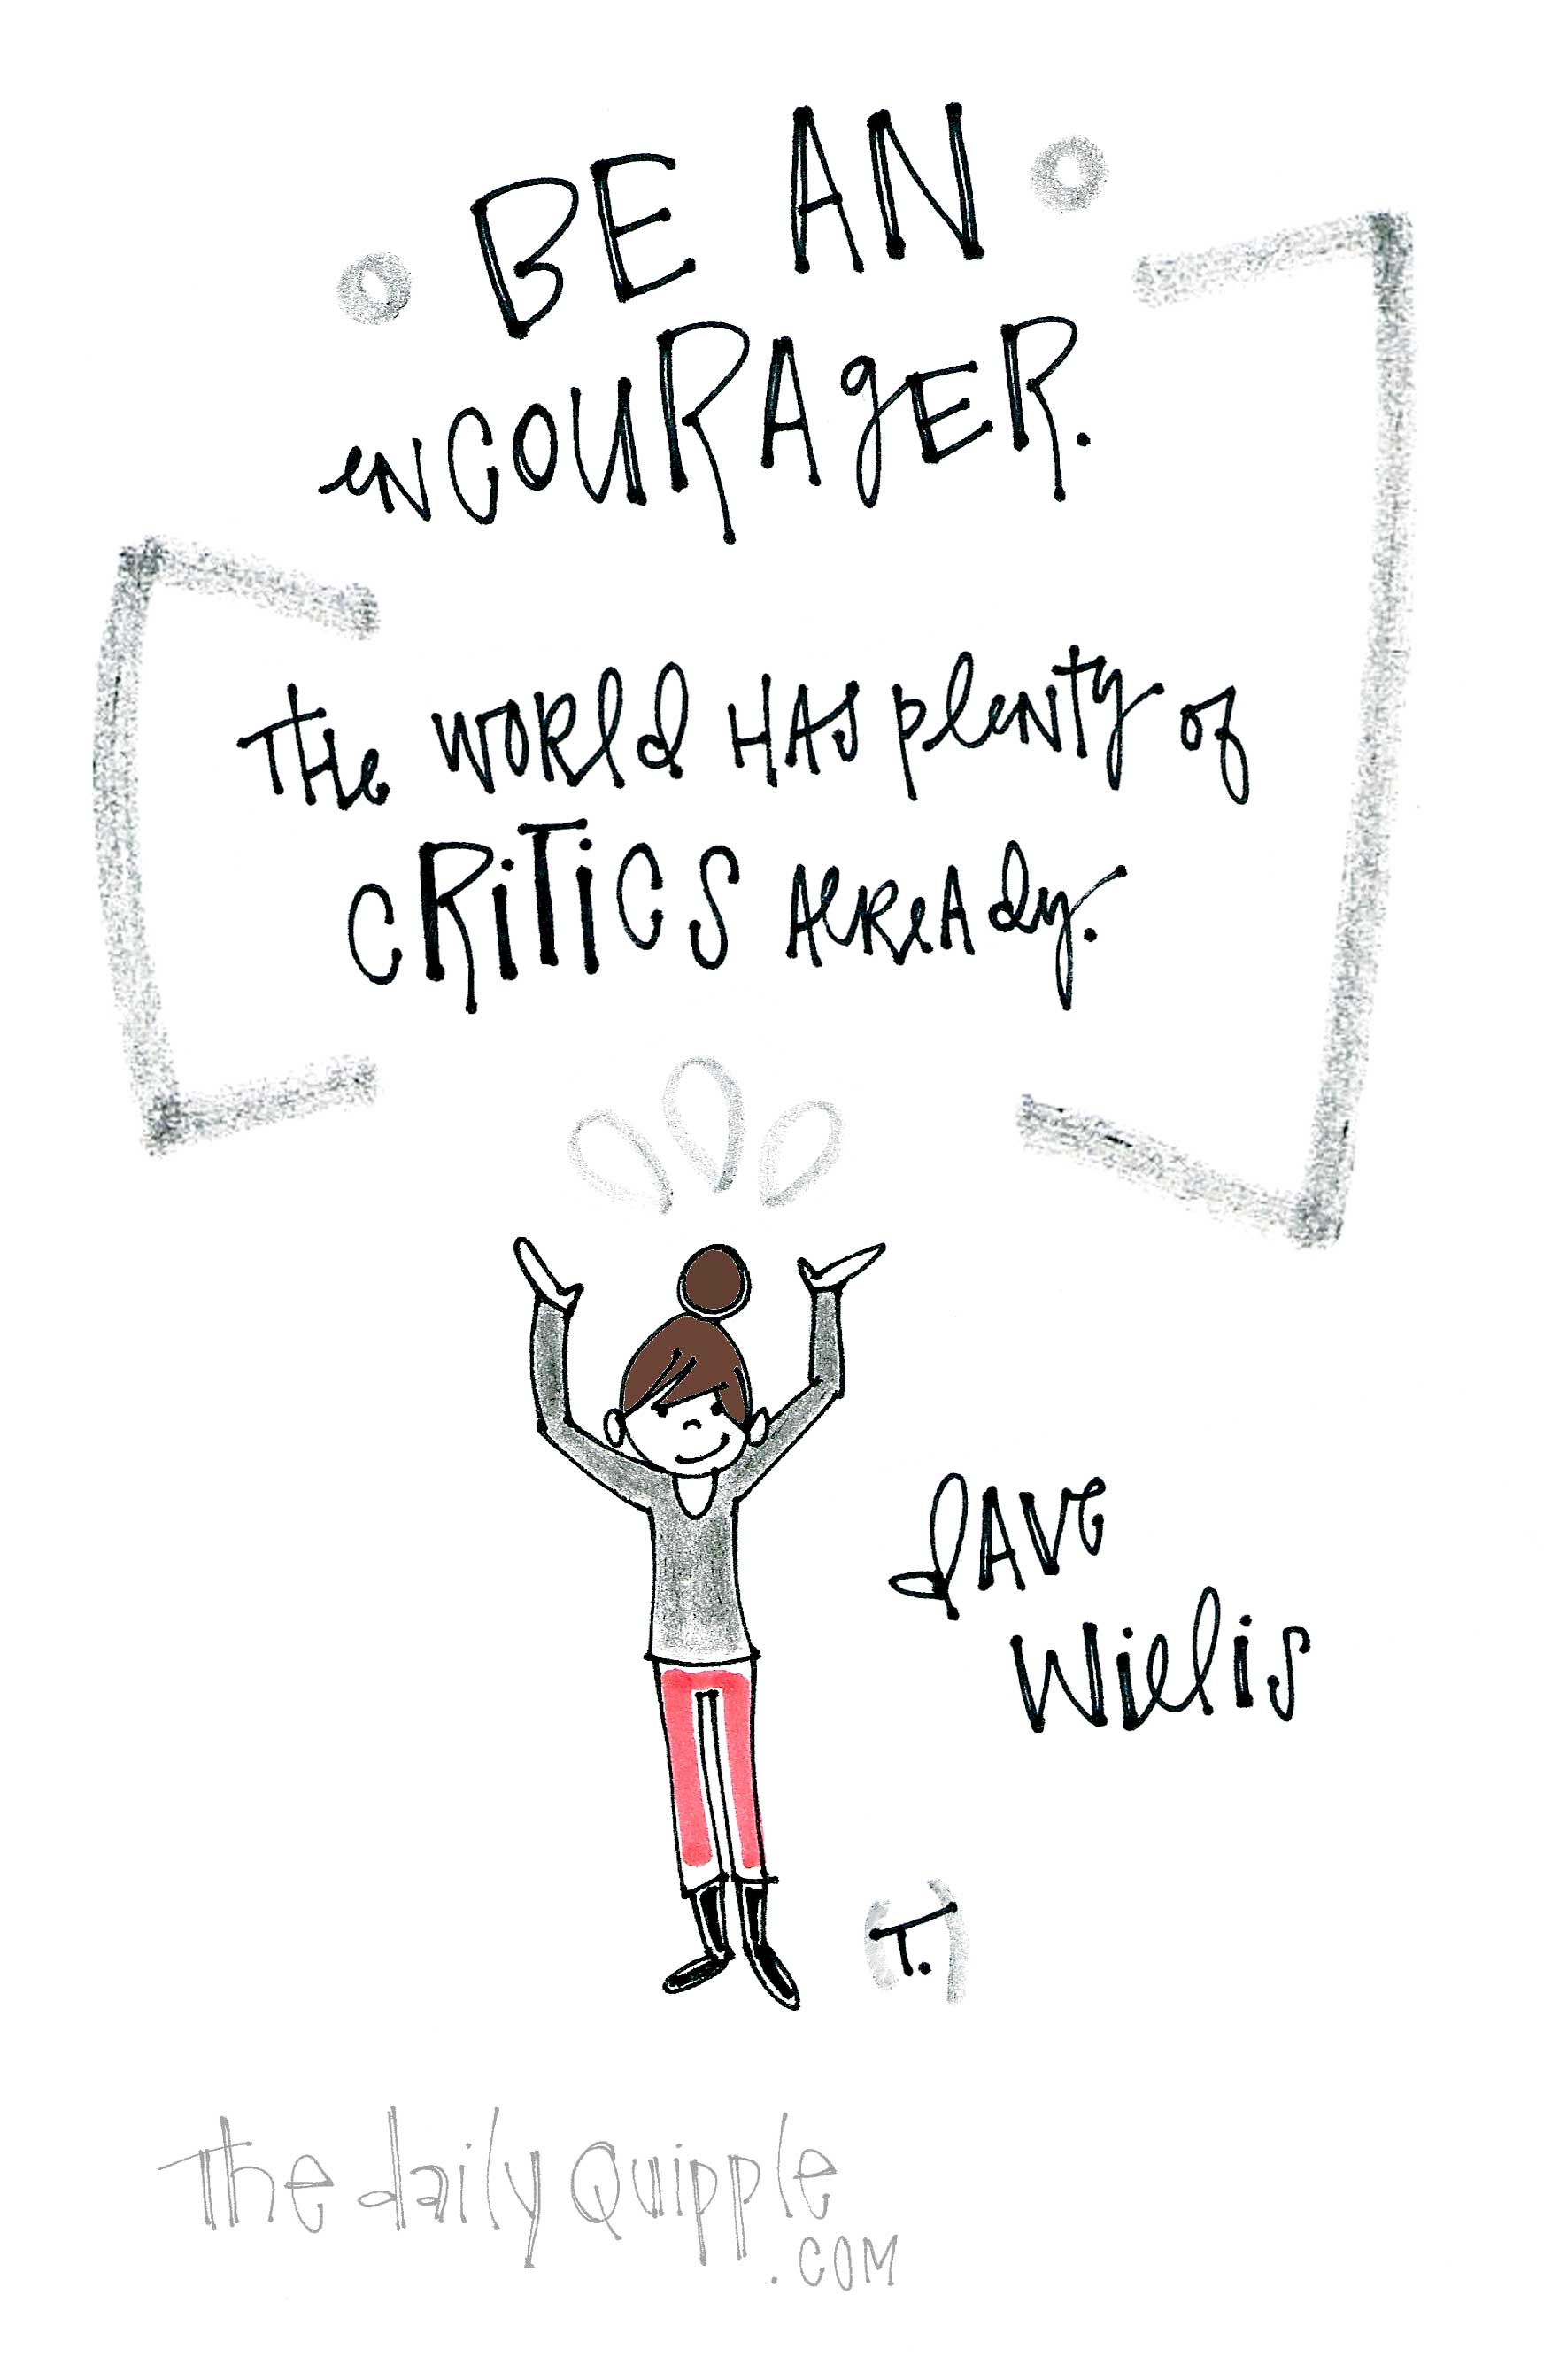 BE AN
enCOURAgER.
THe WORld HAS plenTy of
CRiTiCS AlReAdy.
dAVe
Willis
(T.)
The daily Quipple
.COM